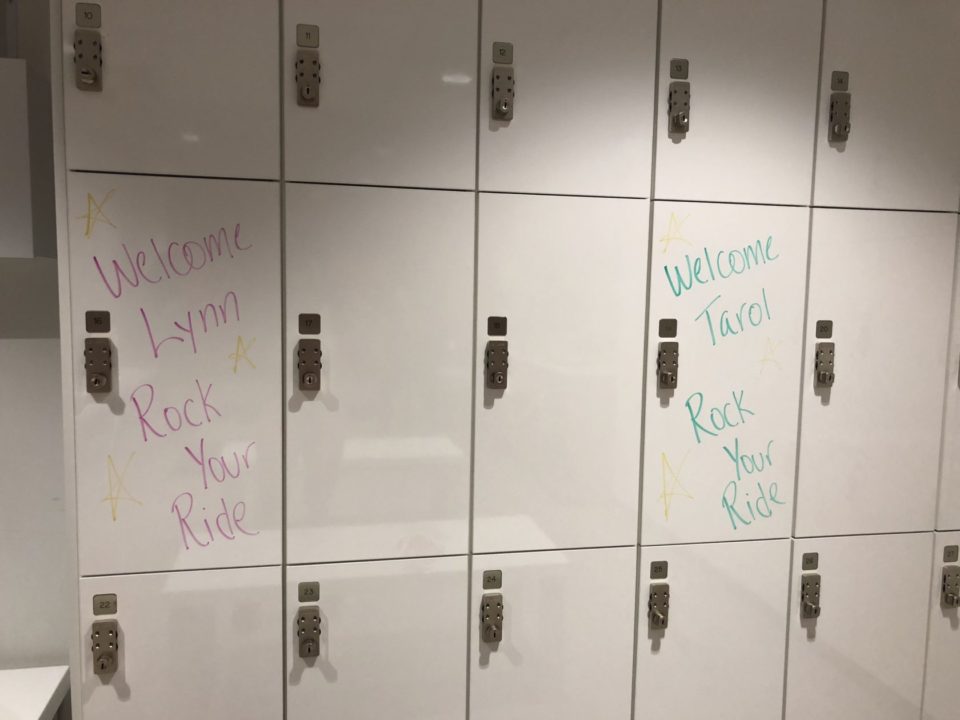 10
11
12
13
14
Welcome
Lynn
16
Rock
Your
Ride
17
18
Welcome
Tarol
Rock
Your
Ride
20
22
23
24
25
26
27